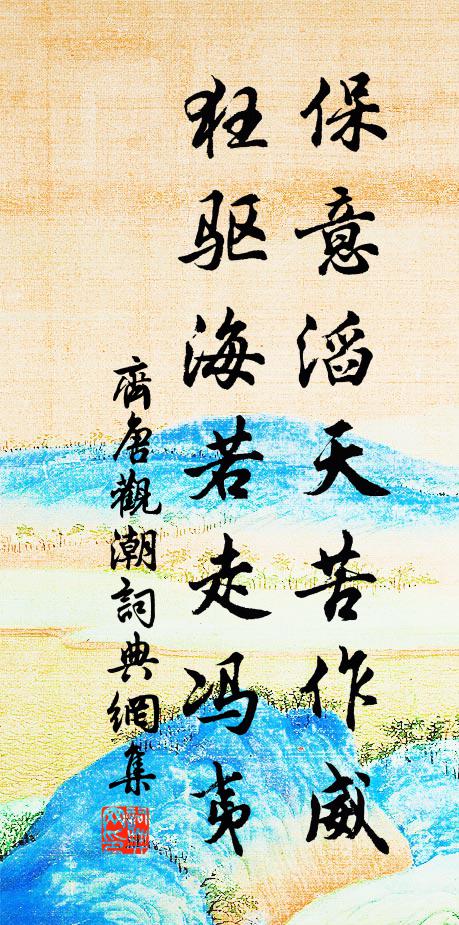 保意滔天苦作威
狂驱海若走冯夷
齊唐觀潮詞典網集